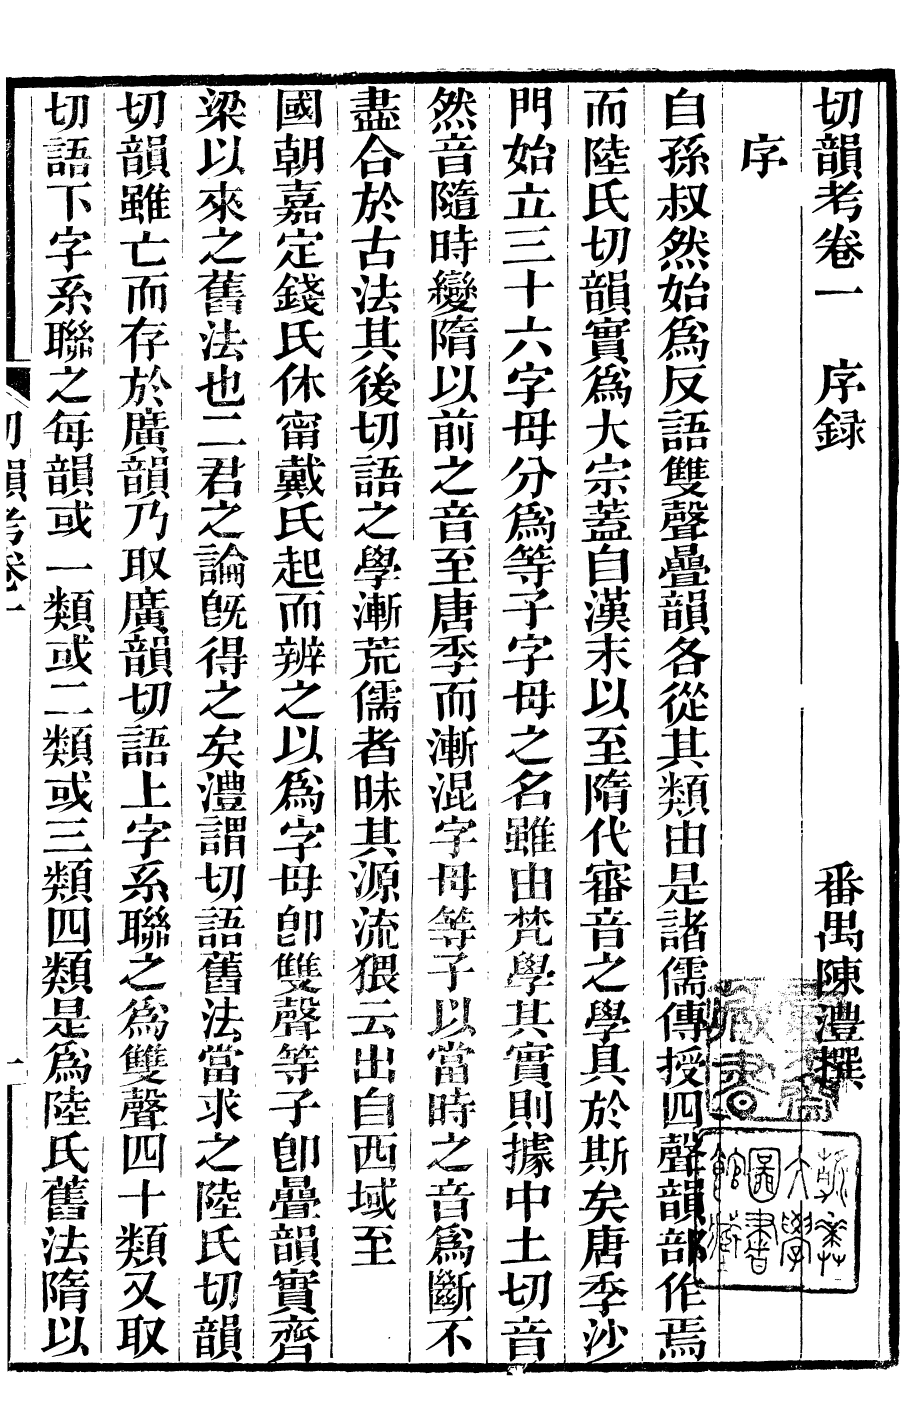 切韻考卷一　序録　番禺陳澧撰
序
自孫叔然始爲反語雙聲疊韻各從其類由是諸儒傳授四聲韻部作焉
而陸氏切韻實爲大宗蓋自漢末以至隋代審音之學具於斯矣唐季沙
門始立三十六字母分爲等子字母之名雖由梵學其實則據中土切音
然音隨時變隋以前之音至唐季而漸混字母等子以當時之音爲斷不
盡合於古法其後切語之學漸荒儒者昧其源流猥云出自西域至
國朝嘉定錢氏休甯戴氏起而辨之以爲字母卽雙聲等子卽疊韻實齊
梁以來之舊法也二君之論旣得之矣澧謂切語舊法當求之陸氏切韻
切韻雖亡而存於廣韻乃取廣韻切語上字系聯之爲雙聲四十類又取
切語下字系聯之每韻或一類或二類或三類四類是爲陸氏舊法隋以
切韻考卷一
一
藏書
大學
圖書
館藏